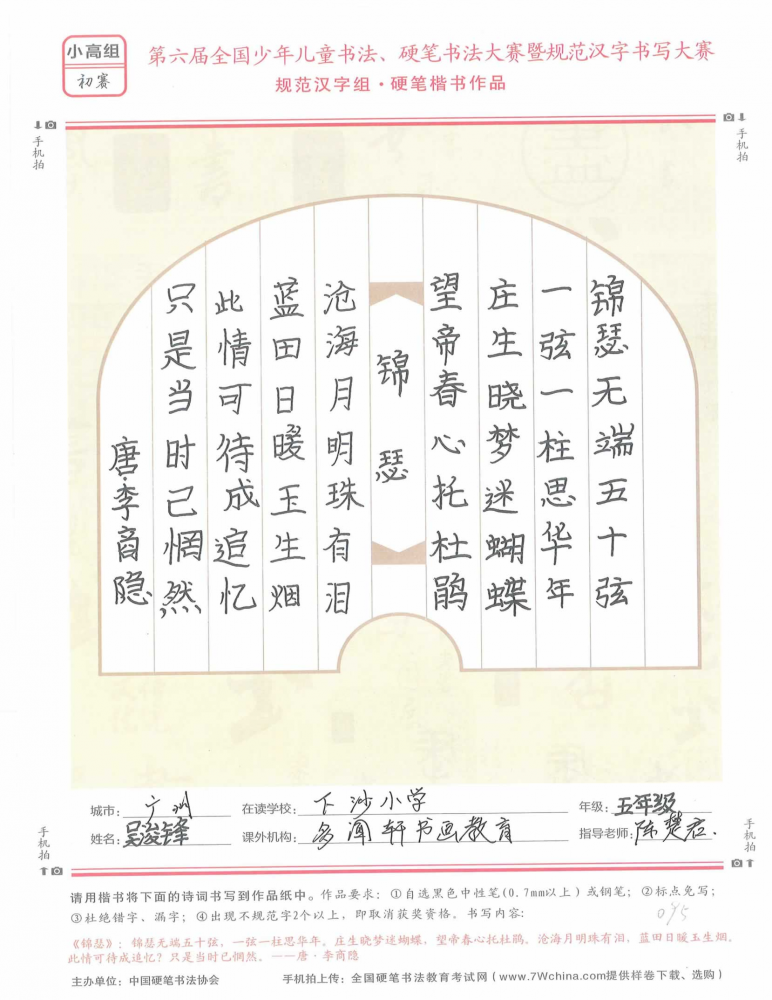 小高组
初赛
第六届全国少年儿童书法、硬笔书法大赛暨规范汉字书写大赛
规范汉字组·硬笔楷书作品
手机拍
手机拍
锦瑟无端五十弦
一弦一柱思华年
庄生晓梦迷蝴蝶
望帝春心托杜鹃
锦瑟
沧海月明珠有泪
蓝田日暖玉生烟
此情可待成追忆
只是当时已惘然
唐·李商隐
城市：广州 在读学校：下沙小学 年级：五年级
姓名：吴浚锋 课外机构：多闻轩书画教育 指导老师：陈楚君
手机拍
手机拍
请用楷书将下面的诗词书写到作品纸中。作品要求：①自选黑色中性笔(0.7mm以上）或钢笔；②标点免写；
③杜绝错字、漏字；④出现不规范字2个以上，即取消获奖资格。书写内容：
《锦瑟》：锦瑟无端五十弦，一弦一柱思华年。庄生晓梦迷蝴蝶，望帝春心托杜鹃。沧海月明珠有泪，蓝田日暖玉生烟。
此情可待成追忆？只是当时已惘然。——唐·李商隐
主办单位：中国硬笔书法协会 手机拍上传：全国硬笔书法教育考试网（www.7Wchina.com提供样卷下载、选购）